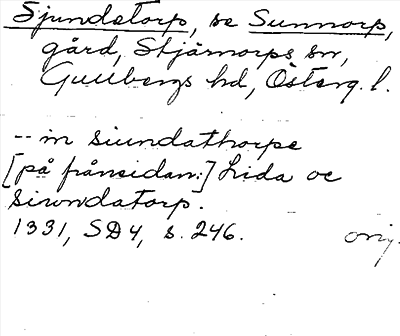 Sjundatorp, se Sunnorp,
gård, Stjärnorps sn,
Gullbergs hd, Österg. l.
-- in siundathorpe
[på frånsidan:] Lida oc
siwndatorp.
1331, SD4, s. 246. orig.